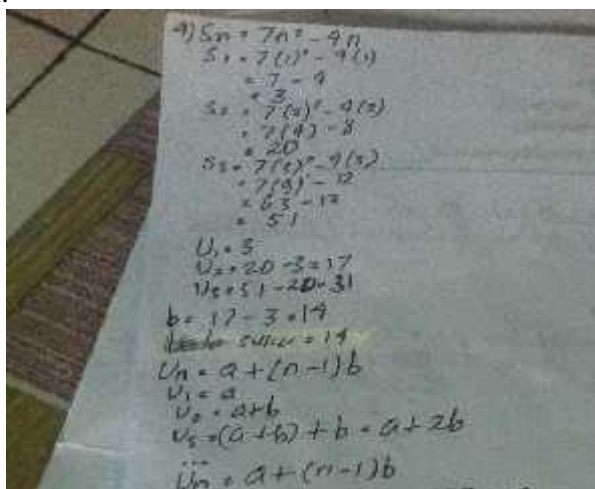 4) Sn = 7n² - 4n
S1 = 7(1)² - 4(1)
= 7 - 4
= 3
S2 = 7(2)² - 4(2)
= 7(4) - 8
= 20
S3 = 7(3)² - 4(3)
= 7(9) - 12
= 63 - 12
= 51
U1 = 3
U2 = 20 - 3 = 17
U3 = 51 - 20 = 31
b = 17 - 3 = 14
= 14
Un = a + (n-1)b
U1 = a
U2 = a+b
U3 = (a+b) + b = a+2b
...
Un = a + (n-1)b